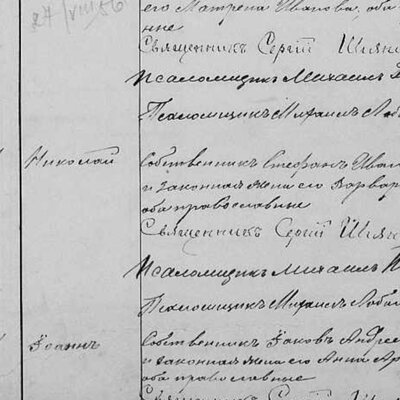 его Матрена Иванова, оба
ные
Священникъ Сергій
Псаломщикъ Михаилъ
Псаломщикъ Михаилъ
Николай
Собственникъ Стефанъ Иван
и законная жена его Варвар
оба православные
Священникъ Сергій
Псаломщикъ Михаилъ
Псаломщикъ Михаилъ
Іоаннъ
Собственникъ Іаковъ Андрее
и законная жена его Анна Ар
оба православные
Священникъ Сергій